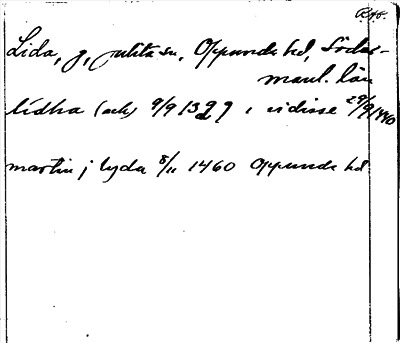 Rgs.
Lida, g, Julita sn, Oppunda hd, Söder-
manl. län
lidha (ack) 9/9 1399 i vidisse 29/9 1440
martin j lyda 8/11 1460 Oppunda hd